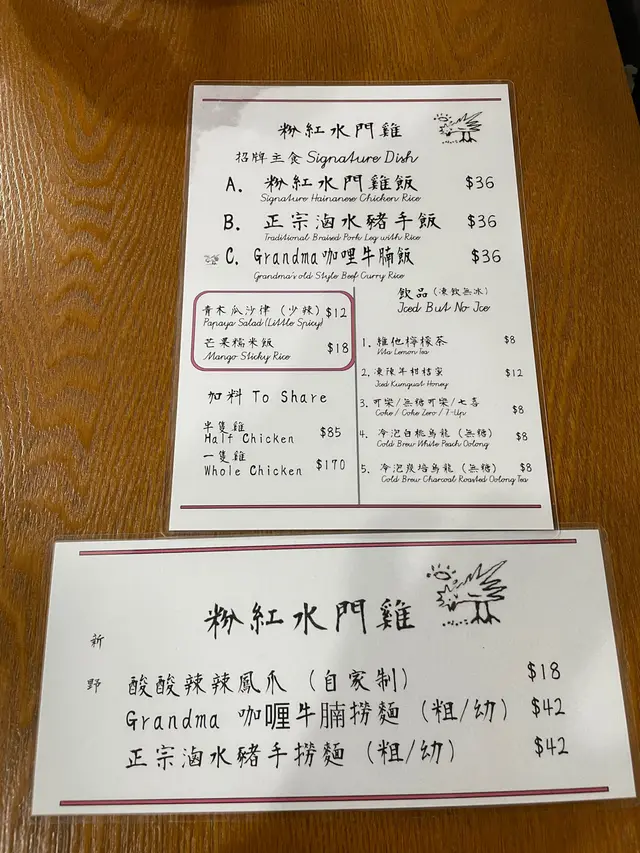 粉紅水門雞
招牌主食 Signature Dish
A. 粉紅水門雞飯 $36
Signature Hainanese Chicken Rice
B. 正宗滷水豬手飯 $36
Traditional Braised Pork Leg with Rice
C. Grandma咖哩牛腩飯 $36
Grandma's old Style Beef Curry Rice
青木瓜沙律 (少辣) $12
Papaya Salad (Little Spicy)
芒果糯米飯 $18
Mango Sticky Rice
加料 To Share
半隻雞
Half Chicken $85
一隻雞
Whole Chicken $170
飲品 (凍飲無冰)
Iced But No Ice
1. 維他檸檬茶 $8
Vita Lemon Tea
2. 凍陳年柑桔蜜 $12
Iced Kumquat Honey
3. 可樂/無糖可樂/七喜
Coke / Coke Zero / 7-Up $8
4. 冷泡白桃烏龍 (無糖) $8
Cold Brew White Peach Oolong
5. 冷泡炭焙烏龍 (無糖) $8
Cold Brew Charcoal Roasted Oolong Tea
粉紅水門雞
新
野
酸酸辣辣鳳爪 (自家制) $18
Grandma 咖喱牛腩撈麵 (粗/幼) $42
正宗滷水豬手撈麵 (粗/幼) $42